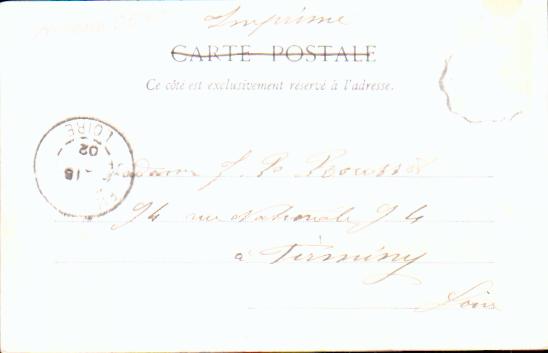 Imprimé
CARTE POSTALE
Ce côté est exclusivement réservé à l'adresse.
LOIRE
02
Madame J. B.
94 rue Nationale, 94
à Firminy
Loire